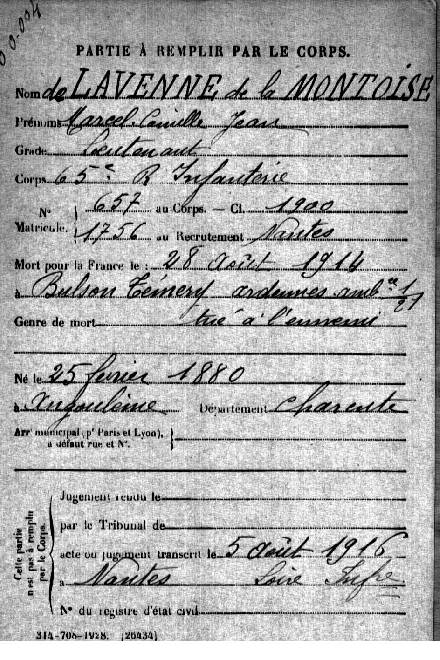 PARTIE À REMPLIR PAR LE CORPS.
Nom de LAVENNE de la MONTOISE
Prénoms Marcel Camille Jean
Grade Lieutenant
Corps 65e R Infanterie
N° 657 au Corps. — Cl. 1900
Matricule. 1756 au Recrutement Nantes
Mort pour la France le : 28 août 1914
à Bulson ardennes amb ce 1/21
Genre de mort tué à l'ennemi
Né le 25 février 1880
à Angoulême Département Charente
Arr municipal (pr Paris et Lyon),
à défaut rue et N°.
Cette partie
n'est pas à remplir
par le Corps.
Jugement rendu le
par le Tribunal de
acte ou jugement transcrit le 5 août 1916
à Nantes Loire Infre
N° du registre d'état civil
314-708-1928. [26434]